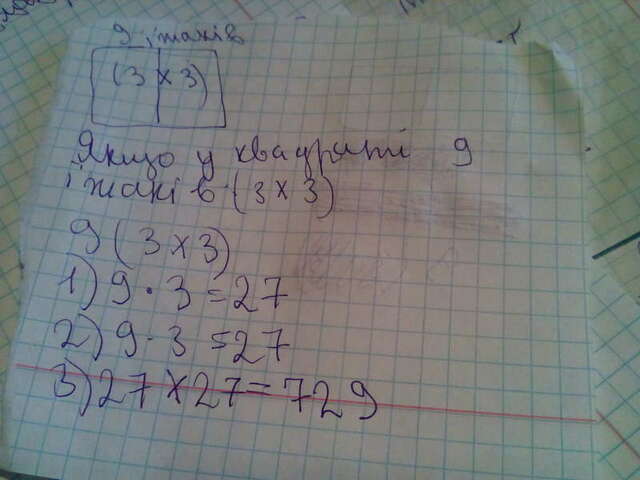 9 їжаків
(3 x 3)
Якщо у квадраті 9
їжаків (3 x 3)
9 (3 x 3)
1) 9 · 3 = 27
2) 9 · 3 = 27
3) 27 x 27 = 729